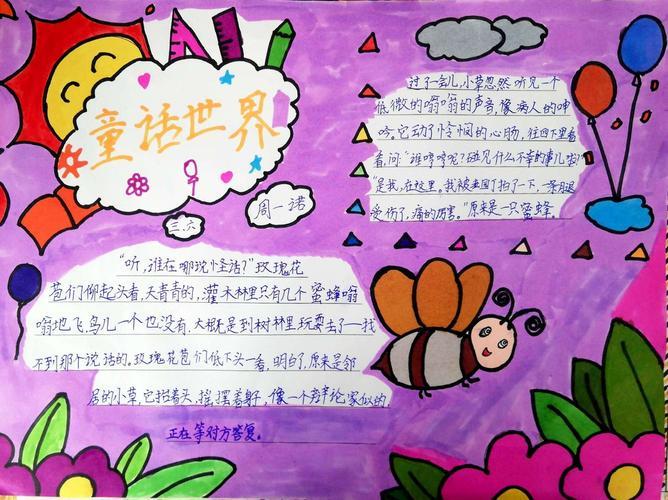 童话世界
三.六
周一诺
"听,谁在哪说怪话?"玫瑰花
苞们仰起头看,天青青的,灌木林里只有几个蜜蜂嗡
嗡地飞,鸟儿一个也没有,大概是到树林里玩耍去了一找
不到那个说话的,玫瑰花苞们低下头一看,明白了,原来是邻
居的小草,它抬着头,摇摆着身子,像一个辩论家似的,
正在等对方答复。
过了一会儿,小草忽然听见一个
低微的嗡嗡的声音,像病人的呻
吟,它动了怜悯的心肠,往四下里看
看,问:"谁哼哼呢?碰见什么不幸的事儿啦?"
"是我,在这里,我被
受伤了,痛的厉害。"原来是一只蜜蜂.